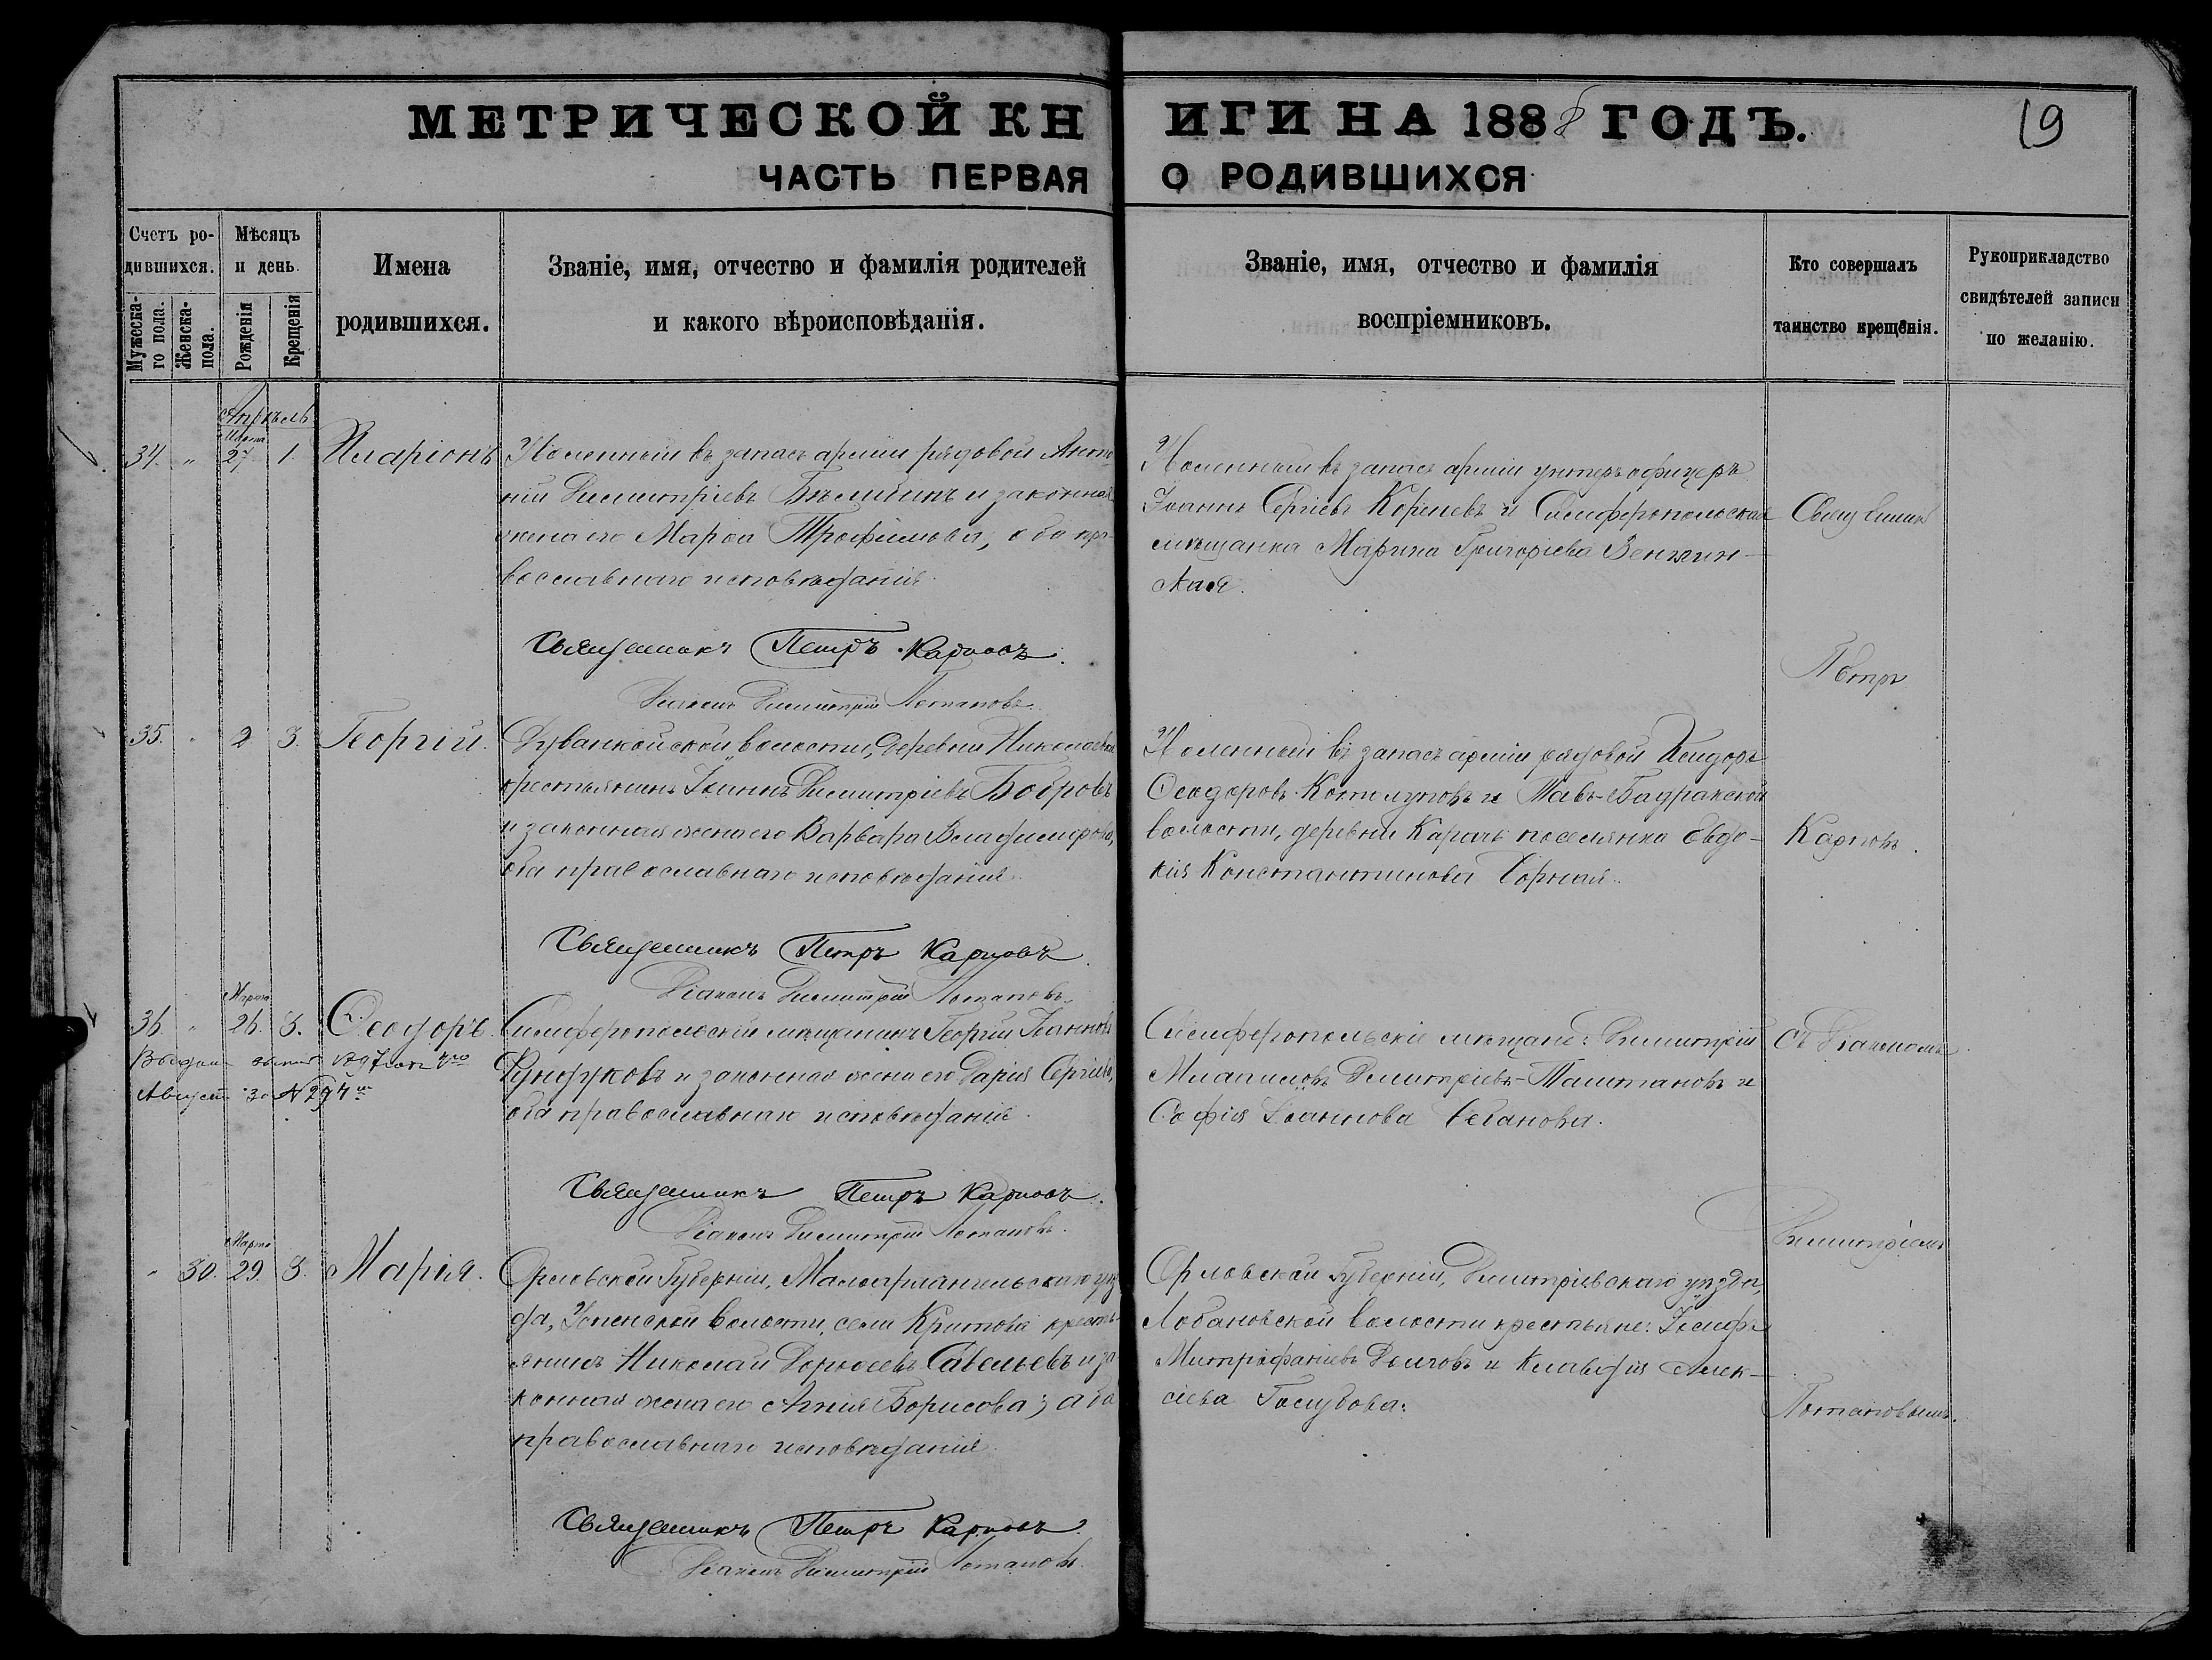 МЕТРИЧЕСКОЙ КНИГИ НА 1888 ГОДЪ.
19
ЧАСТЬ ПЕРВАЯ О РОДИВШИХСЯ
Счетъ ро-
дившихся.
Мужеска-
го пола.
Женска-
пола.
Мѣсяцъ
и день.
Рожденія
Крещенія
Имена
родившихся.
Званіе, имя, отчество и фамилія родителей
и какого вѣроисповѣданія.
Званіе, имя, отчество и фамилія
воспріемниковъ.
Кто совершалъ
таинство крещенія.
Рукоприкладство
свидѣтелей записи
по желанію.
Апрѣль
Марта
34. " 27 1. Иларіонъ
Уволенный въ запасъ арміи рядовой Анто-
ній Димитріевъ и законная
жена его Марѳа Трофимова, оба пра-
вославнаго исповѣданія.
Уволенный въ запасъ арміи унтеръ офицеръ
Іоаннъ Сергіевъ Кореневъ и Симферопольская
мѣщанка Марина Григоріева
ская.
Священникъ
Священникъ Петръ Карповъ.
Діаконъ Димитрій Потаповъ.
Петръ
35. " 2 3. Георгій.
волости, деревни Николаевки
крестьянинъ Іоаннъ Димитріевъ Бобровъ
и законная жена его Варвара Владимірова,
оба православнаго исповѣданія.
Уволенный въ запасъ арміи рядовой Исидоръ
Ѳеодоровъ и
волости, деревни Карачъ поселянка Евдо-
кія Константинова Чорная.
Карповъ.
Священникъ Петръ Карповъ.
Діаконъ Димитрій Потаповъ.
Марта
36. " 26. 3. Ѳеодоръ.
Симферопольскій мѣщанинъ Георгій Іоанновъ
Фундуковъ и законная жена его Дарія Сергіева,
оба православнаго исповѣданія.
1897
Августа 30 № 294
Симферопольскіе мѣщане: Димитрій
Димитріевъ и
Софія Іоаннова
съ Діакономъ
Священникъ Петръ Карповъ.
Діаконъ Димитрій Потаповъ.
Димитріемъ
Марта
" 30. 29. 3. Марія.
Орловской Губерніи, Малоархангельскаго уѣз-
да, Успенской волости, села Критова кресть-
янинъ Николай Савельевъ и за-
конная жена его Анна Борисова; оба
православнаго исповѣданія.
Орловской Губерніи, Димитріевскаго уѣзда,
Лобановской волости крестьяне: Іосифъ
Митрофаніевъ Долговъ и Клавдія Алек-
сіева Голубова.
Потаповымъ.
Священникъ Петръ Карповъ.
Діаконъ Димитрій Потаповъ.